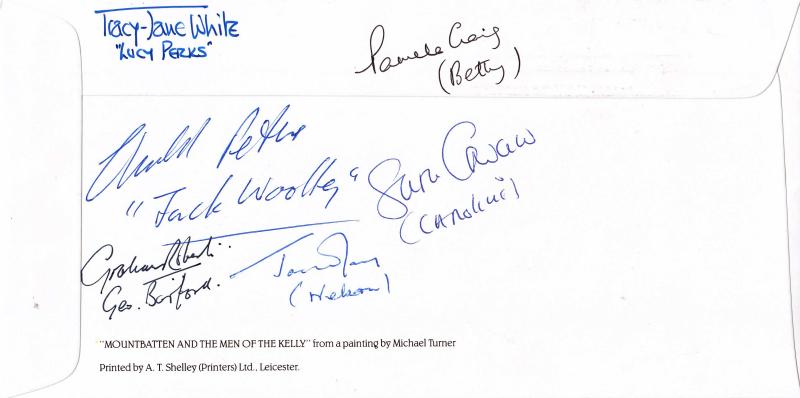 Tracy-Jane White
"LUCY PERKS"
Pamela Craig
(Betty)
Arnold Peters
"Jack Woolley"
Sara Coward
(CAROLINE)
Graham Roberts
Geo. Barford.
Jack May
(Nelson)
"MOUNTBATTEN AND THE MEN OF THE KELLY" from a painting by Michael Turner
Printed by A. T. Shelley (Printers) Ltd., Leicester.